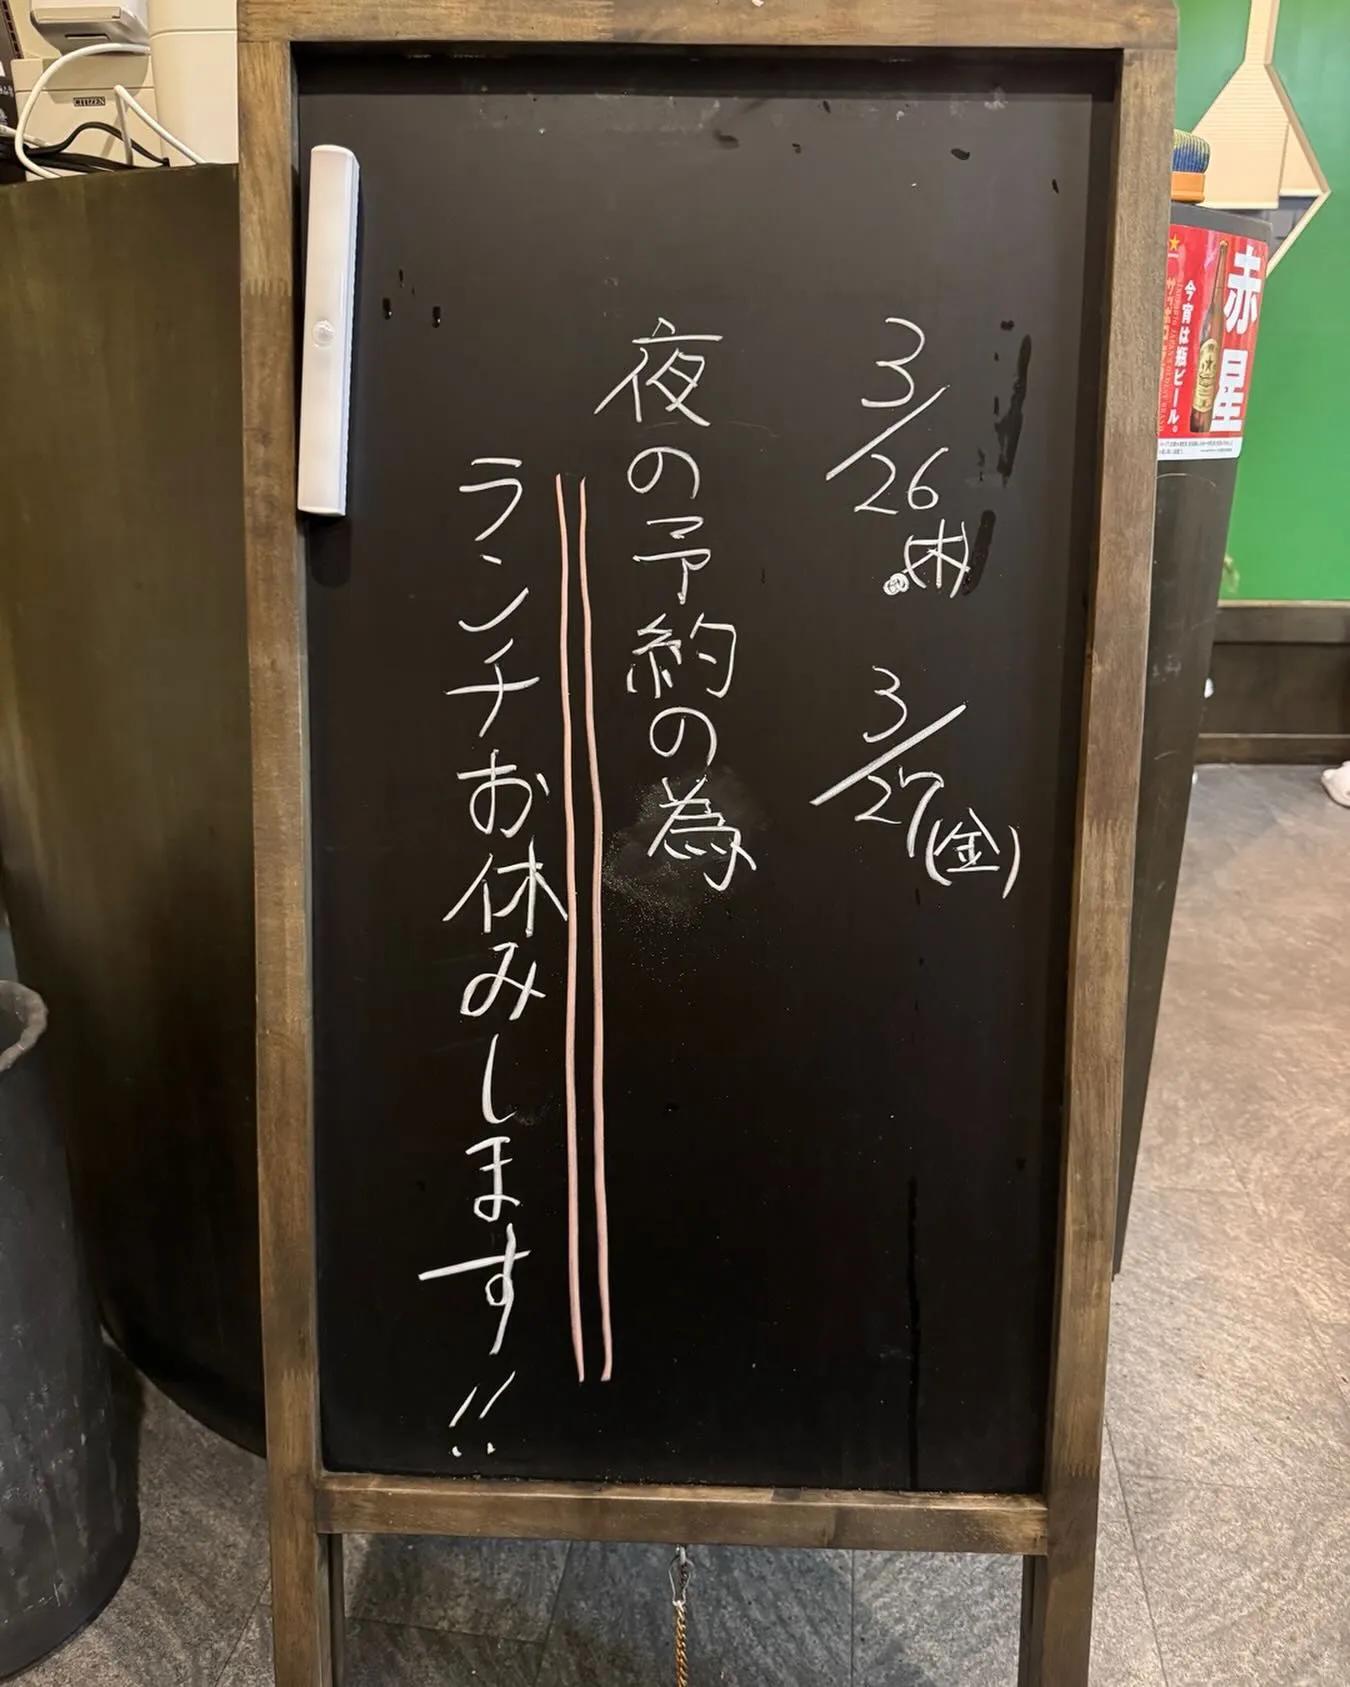 3/26(木)・3/27(金)
夜の予約の為
ランチお休みします!!
赤星
今宵は瓶ビール。
CITIZEN